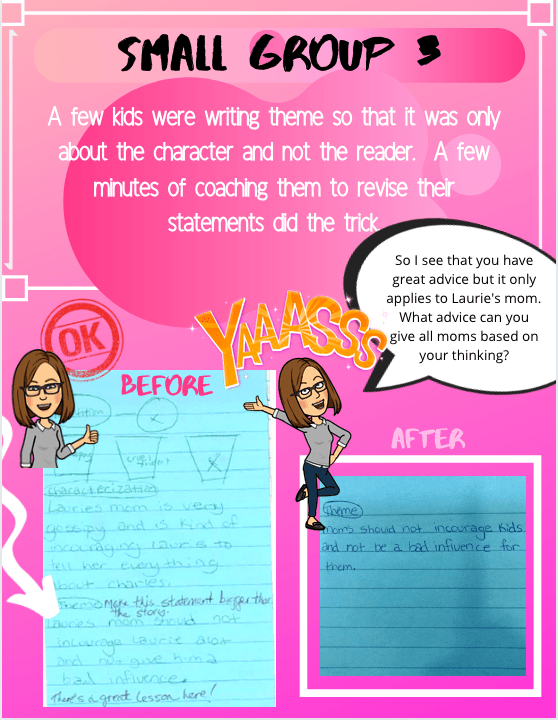 SMALL GROUP 3
A few kids were writing theme so that it was only
about the character and not the reader. A few
minutes of coaching them to revise their
statements did the trick.
So I see that you have
great advice but it only
applies to Laurie's mom.
What advice can you
give all moms based on
your thinking?
OK
YAAASSS
BEFORE
characterization
Lauries mom is very
gossipy and is kind of
incouraging lauris to
tell her everything
about charles.
Theme Make this statement bigger than
the story.
Lauries mom should not
incourage Laurie alot
and not give him a
bad influence.
There's a great lesson here!
AFTER
Theme
moms should not incourage kids
and not be a bad influence for
them.